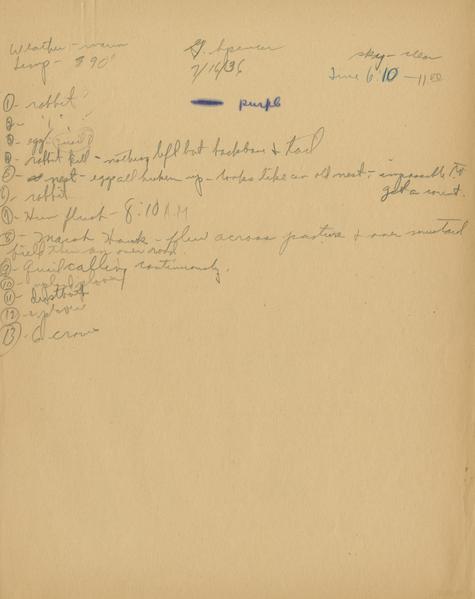 Weather - warm G. Spencer sky - clear
Temp - 90° 7/16/36 Time 6:10 - 11:00
① - rabbit purple
2 - "
3 - egg
4 - rabbit kill - nothing left but backbone & tail
5 - nest - eggs all broken up - looks like an old nest - impossible to
get a count.
6 - rabbit
7 - Hen flush - 8:10 A.M.
8 - Marsh Hawk - flew across pasture & over mustard
field then over road.
9 - Quail calling continuously.
10 -
11 - dustbath
12 -
13 - 6 crows